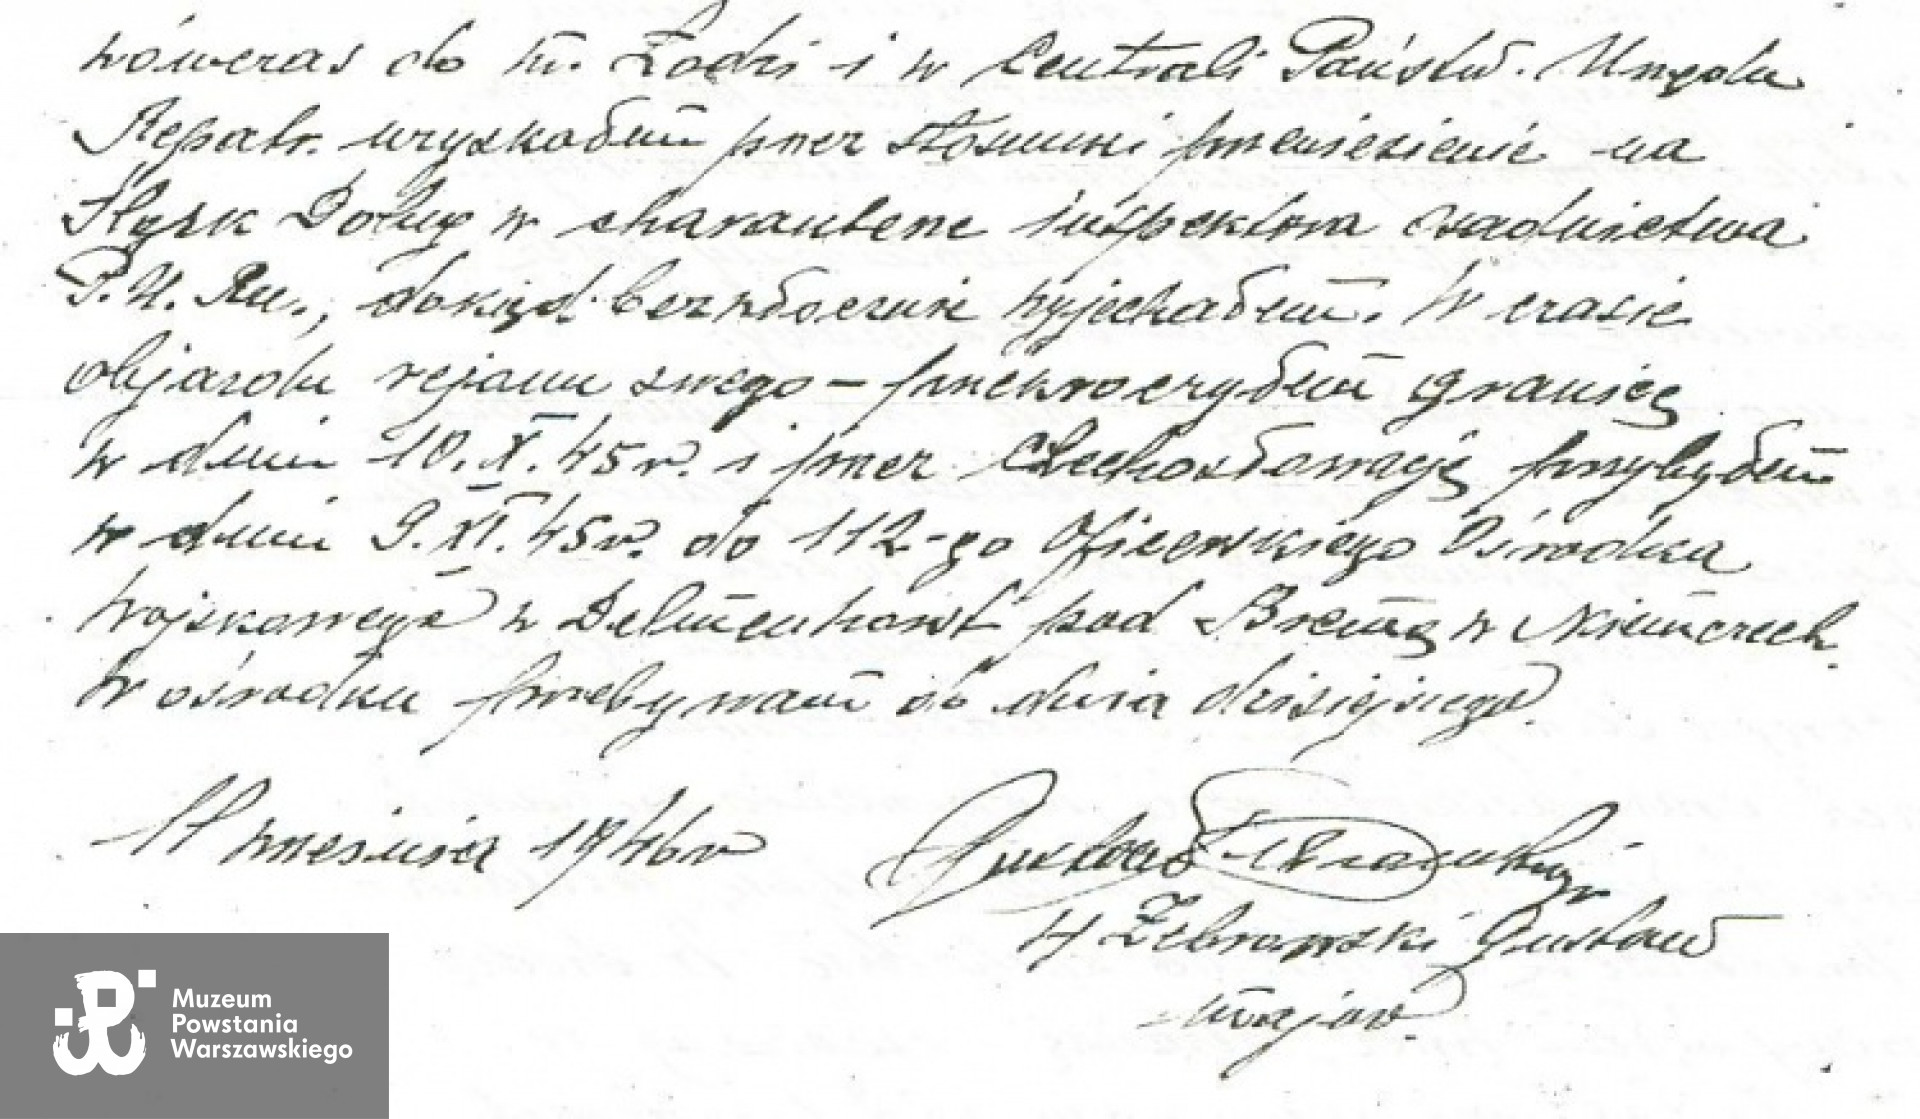 wówczas do m. Łodzi i w Centrali Państw. Urzędu
Repatr. uzyskałem przez stosunki przeniesienie na
Śląsk Dolny w charakterze inspektora osadnictwa
P.U.R-u., dokąd bezwłocznie wyjechałem. W czasie
objazdu rejonu swego – przekroczyłem granicę
w dniu 10.X.45r. i przez Czechosłowację przybyłem
w dniu 9.XI.45r. do 112-go Oficerskiego Ośrodka
Wojskowego w Delmenhorst pod Bremą w Niemczech.
W ośrodku przebywam do dnia dzisiejszego.
września 1946r
Żebrowski Gustaw
major.
Muzeum
Powstania
Warszawskiego